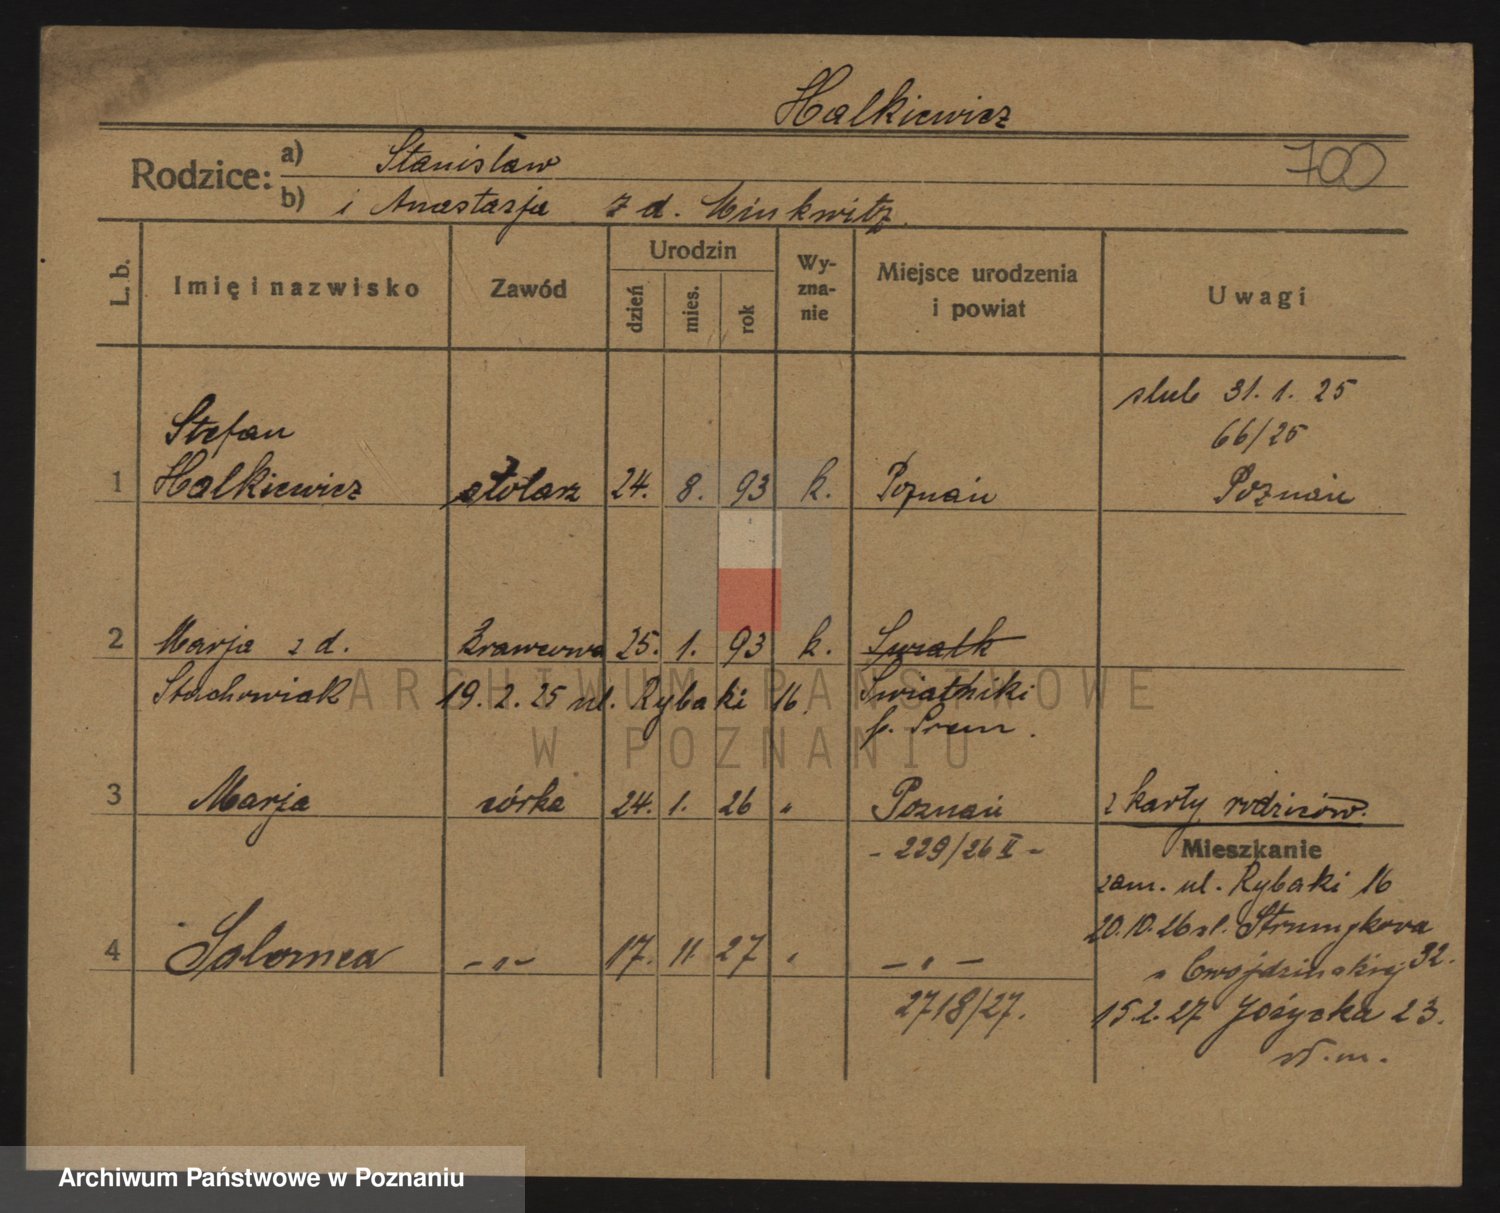 Halkiewicz
Rodzice: a) Stanisław
700
b) i Anastazja z d. Minkwitz.
L. b. Imię i nazwisko Zawód Urodzin dzień mies. rok Wyznanie Miejsce urodzenia i powiat Uwagi
slub 31. 1. 25
66/25
Stefan
1 Halkiewicz stolarz 24. 8. 93 k. Poznań Poznań
2 Marja z d. Krawcowa 25. 1. 93 k.
Stachowiak 19. 2. 25 ul. Rybaki 16. Swiątniki
p. Srem.
ARCHIWUM PAŃSTWOWE
W POZNANIU
3 Marja córka 24. 1. 26 " Poznań z karty rodziców.
- 229/26 II -
Mieszkanie
zam. ul. Rybaki 16
20.10.26 ul. Strumykowa
4 Salomea - " - 17. 11 27 " - " - 32.
2718/27.
15.2.27 23.
Archiwum Państwowe w Poznaniu